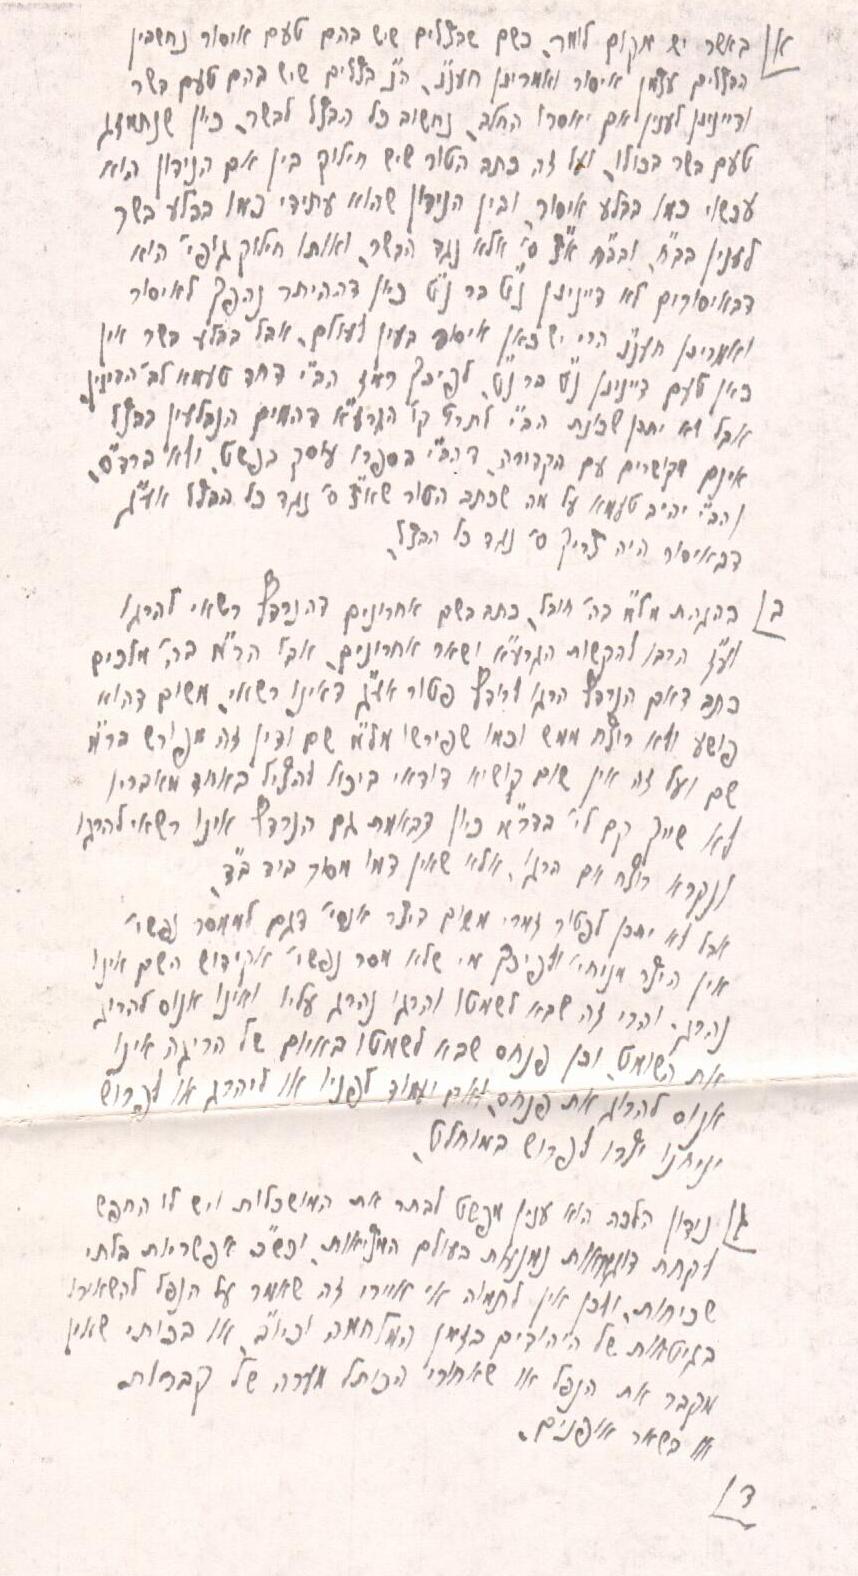 א] באשר יש מקום לומר, כשם שבצלים שיש בהם טעם איסור נחשבין
הבצלים עצמן איסור ואמרינן חענ"נ, ה"נ בצלים שיש בהם טעם בשר
ודיינינן לענין אם יאסרו החלב, נחשוב כל הבצל לבשר, כיון שנתמזג
טעם בשר בכולו, ועל זה כתב הטור שיש חילוק בין אם הנידון הוא
עכשוי כמו בבלע איסור, ובין הנידון שהוא עתידי כמו בבלע בשר
לענין בב"ח, ובב"ח א"צ ס' אלא נגד הבשר, ואותו חילוק גופי' הוא
דבאיסורים לא דיינינן נ"ט בר נ"ט כיון דההיתר נהפך לאיסור
ואמרינן חענ"נ הרי יש כאן איסור בעין לעולם, אבל בבלע בשר אין
כאן טעם דיינינן נ"ט בר נ"ט, לפיכך רמז הב"י דחד טעמא לב' הדינין,
אבל לא יתכן שכונת הב"י לתרץ קו' הגרע"א דהמים הנבלעין בבצל
אינם מקושרים עם הקדירה, דהב"י בספרו עוסק בפשט, ולא ברמ"ס,
והב"י יהיב טעמא על מה שכתב הטור שא"צ ס' נגד כל הבצל אע"ג
דבאיסור היה צריך ס' נגד כל הבצל.
ב] בהגהת מל"מ בה' חובל, כתב בשם אחרונים דהנרדף רשאי להרגו
וע"ז הרבו להקשות הגרע"א ושאר אחרונים, אבל הר"מ בה' מלכים
כתב דאם הנרדף הרגו לרודף פטור אע"ג דאינו רשאי, משום דהוא
פושע ולא רוצח ממש וכמו שפירשו מל"מ שם ודין זה מפורש בר"מ
שם ועל זה אין שום קושיא דודאי ביכול להציל באחד מאבריו
לא שייך קם לי' בדר"מ כיון דבאמת גם הנרדף אינו רשאי להרגו
ונקרא רוצח אם הרגו, אלא שאין דמו מסור ביד ב"ד,
אבל לא יתכן לפטור זמרי משום דיצר אנסי' דגם לממסר נפשי'
אין היצר מניחי' ולפיכך מי שלא מסר נפשי' אקידוש השם אינו
נהרג, והרי זה שבא לשמטו והרגו נהרג עליו ואינו אנוס להרוג
את השומט, וכן פנחס שבא לשמטו באיום של הריגה אינו
אנוס להרוג את פנחס, ואם יעמוד לפניו או ליהרג או לפרוש
יניחנו יצרו לפרוש במוחלט.
ג] נידון הלכה הוא ענין מפשט לבתר את המושכלות ויש לו החפש
לקחת דוגמאות נמנעות בעולם המציאות, וכש"כ אפשריות בלתי
שכיחות, ולכן אין לתמוה אי איירי זה שאמר על הנפל להשאירו
בגיטאות של היהודים בזמן המלחמה וכיו"ב, או בכותי שאין
מקבר את הנפל או שאחורי הכותל מערה של קברות,
או בשאר אופנים.
ד]